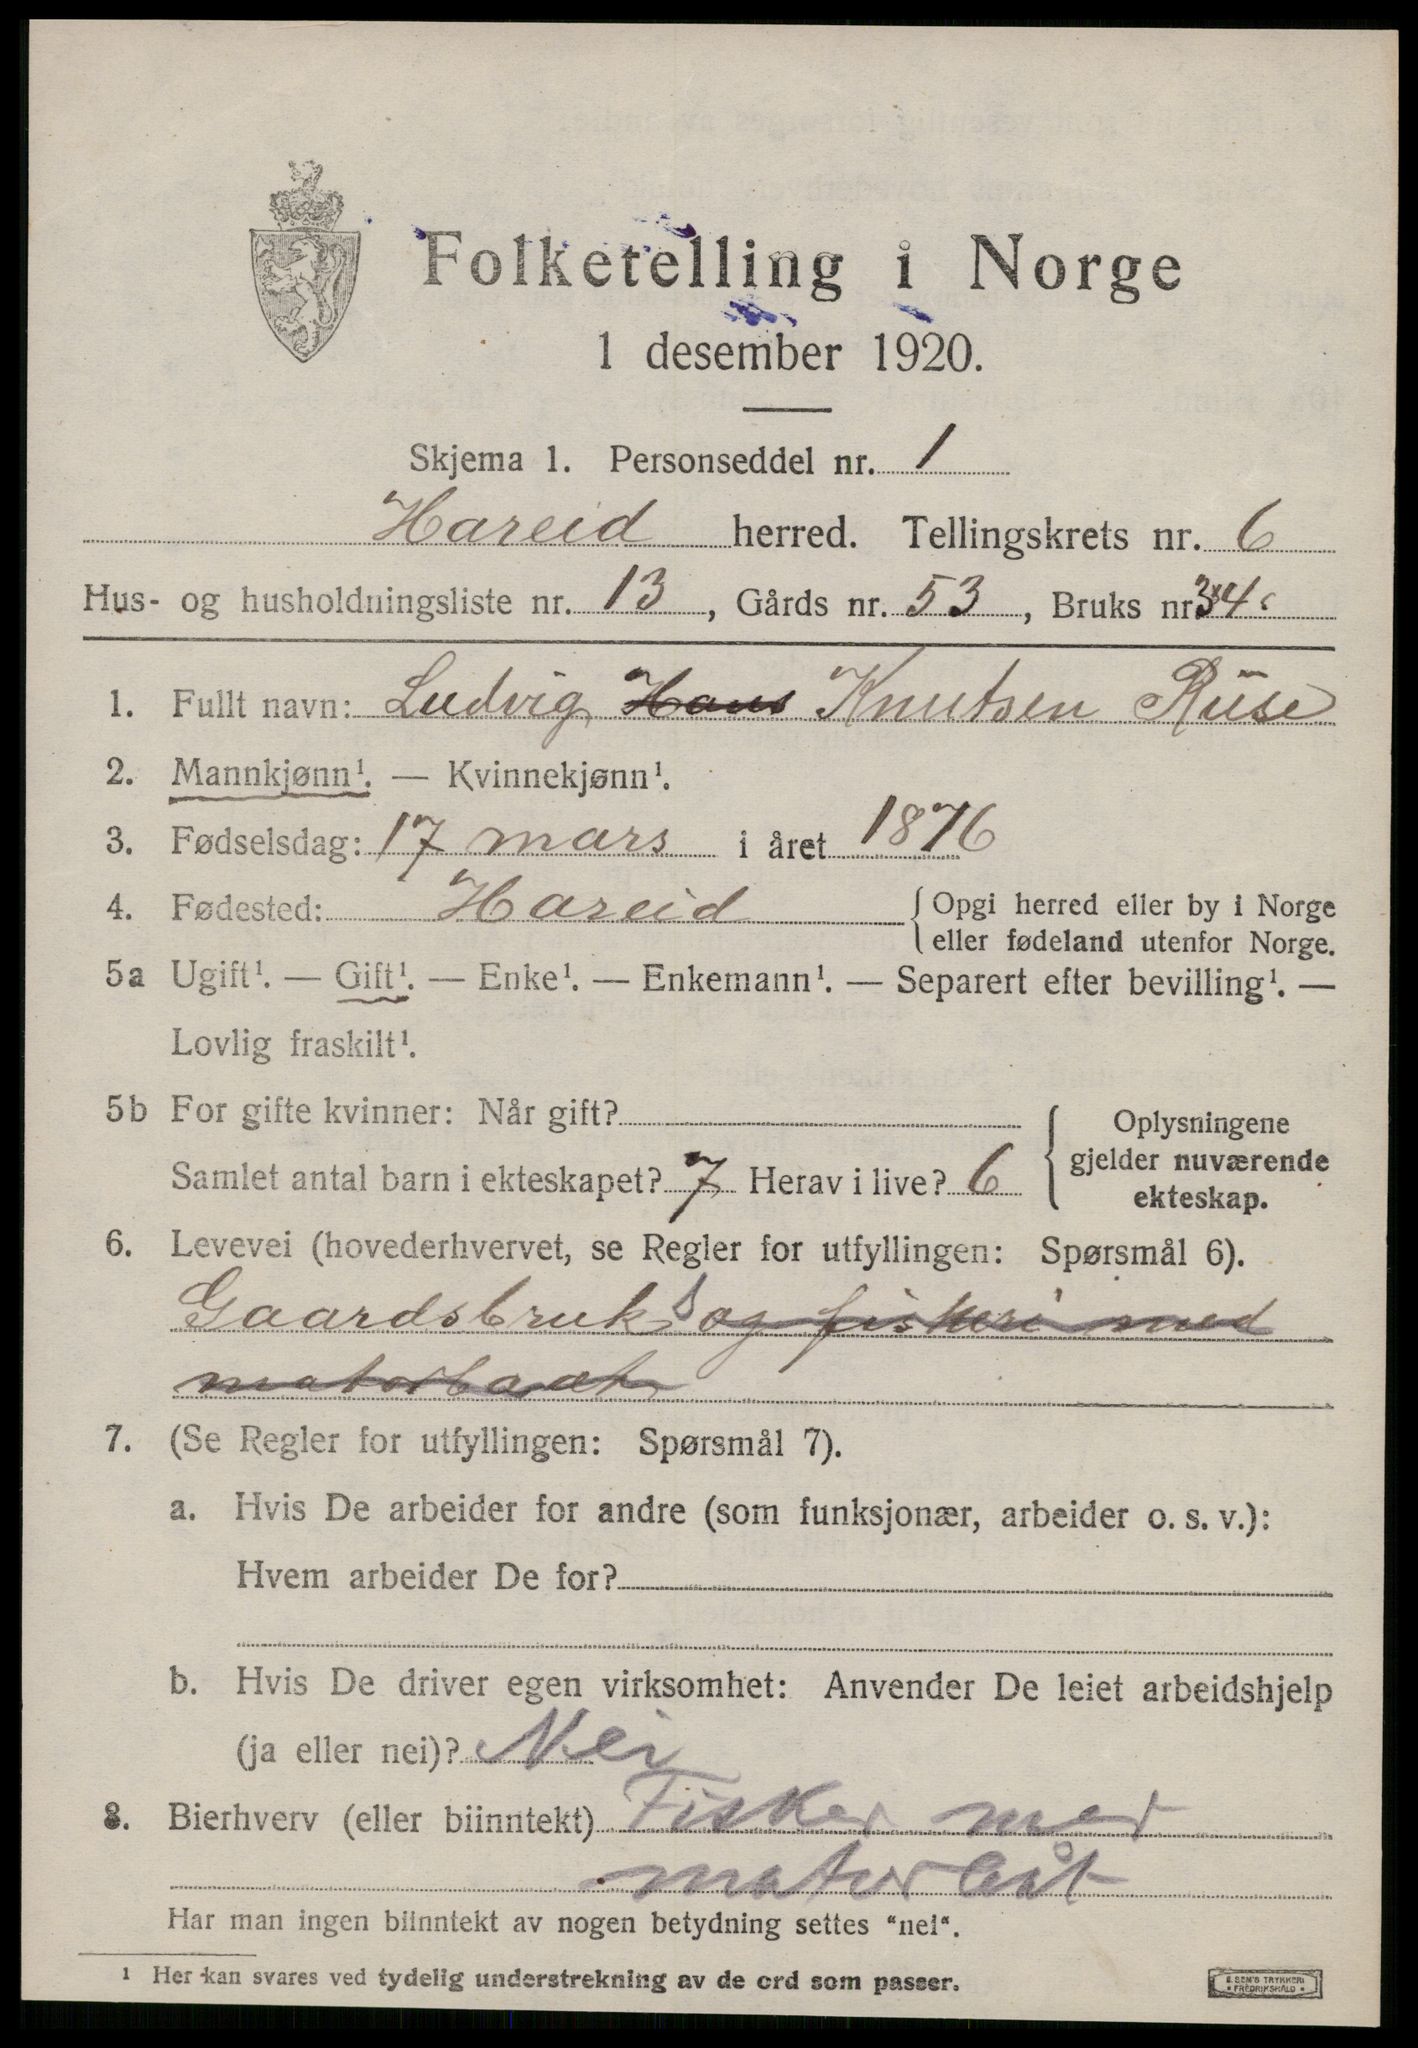 Folketelling i Norge
1 desember 1920.
Skjema 1. Personseddel nr. 1
Hareid herred. Tellingskrets nr. 6
Hus- og husholdningsliste nr. 13, Gårds nr. 53, Bruks nr 34
1. Fullt navn: Ludvig Hans Knutsen Riise
2. Mannkjønn¹. — Kvinnekjønn¹.
3. Fødselsdag: 17 mars i året 1876
4. Fødested: Hareid { Opgi herred eller by i Norge
eller fødeland utenfor Norge.
5a Ugift¹. — Gift¹. — Enke¹. — Enkemann¹. — Separert efter bevilling¹. —
Lovlig fraskilt¹.
5b For gifte kvinner: Når gift? { Oplysningene
gjelder nuværende
Samlet antal barn i ekteskapet? 7 Herav i live? 6
ekteskap.
6. Levevei (hovederhvervet, se Regler for utfyllingen: Spørsmål 6).
Gaardsbruk og fiskeri med
motorbaat
7. (Se Regler for utfyllingen: Spørsmål 7).
a. Hvis De arbeider for andre (som funksjonær, arbeider o. s. v.):
Hvem arbeider De for?
b. Hvis De driver egen virksomhet: Anvender De leiet arbeidshjelp
(ja eller nei)? Nei
8. Bierhverv (eller biinntekt) Fisker med
motorbåt
Har man ingen biinntekt av nogen betydning settes "nei".
¹ Her kan svares ved tydelig understrekning av de ord som passer.
E. SEM'S TRYKKERI
• FREDRIKSHALD •